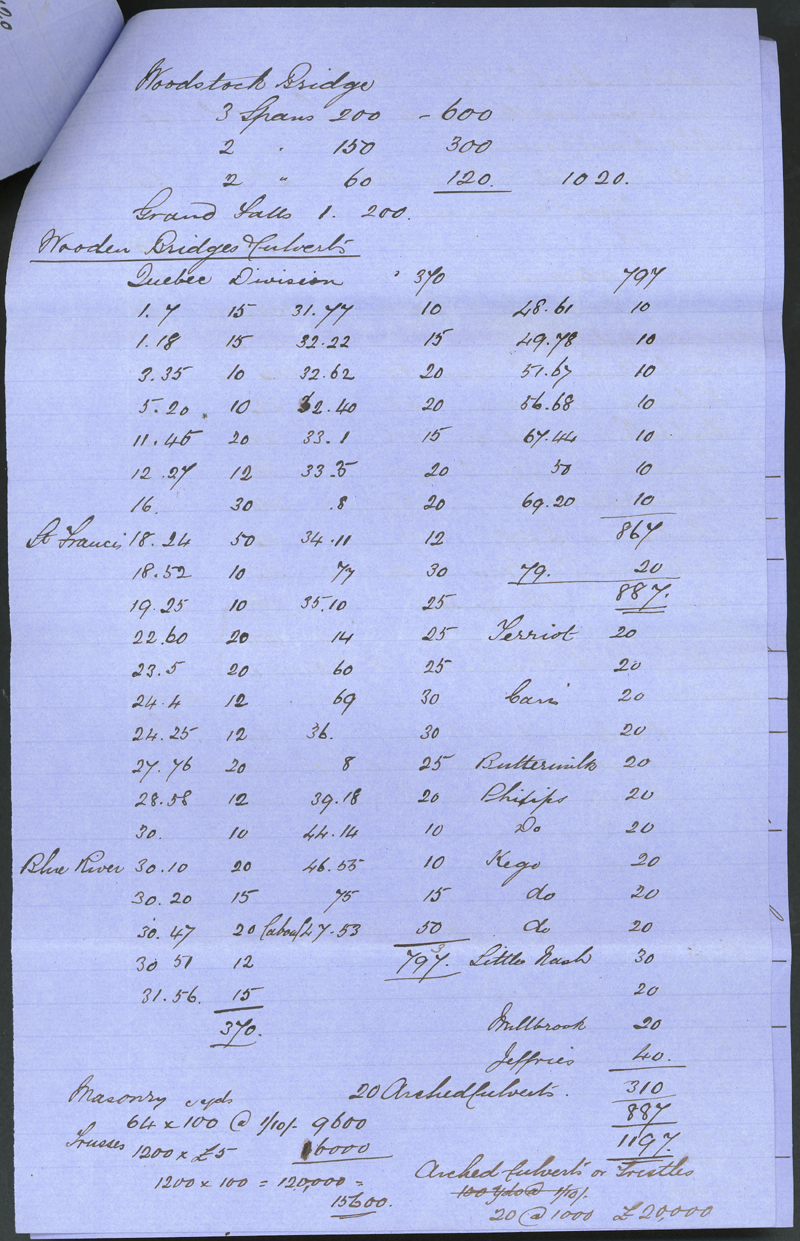 Woodstock Bridge
3 Spans 200 - 600
2 " 150 300
2 " 60 120. 1020.
Grand Falls 1. 200.
Wooden Bridges & Culverts
Quebec Division 370 797
1.7 15 31.77 10 48.61 10
1.18 15 32.22 15 49.78 10
3.35 10 32.62 20 51.67 10
5.20 10 32.40 20 56.68 10
11.45 20 33.1 15 67.44 10
12.27 12 33.5 20 50 10
16. 30 .8 20 69.20 10
St Francis 18.24 50 34.11 12 867
18.52 10 77 30 79. 20
19.25 10 35.10 25 887.
22.60 20 14 25 Terriot 20
23.5 20 60 25 20
24.4 12 69 30 20
24.25 12 36. 30 20
27.76 20 8 25 Buttermilk 20
28.58 12 39.18 20 Philips 20
30. 10 44.14 10 Do 20
Blue River 30.10 20 46.55 10 Kego 20
30.20 15 75 15 do 20
30.47 20 (about 47.53 50 do 20
30 51 12 797. Little Nash 30
31.56. 15 20
370. Millbrook 20
Jeffries 40.
Masonry yds 20 Arched Culverts. 310
64 x 100 @ 1/10/- 9600 887
Trusses 1200 x £5 6000 1197.
1200 x 100 = 120,000 = Arched Culverts or Tristles
15600. 100 yds @ 1/10/-
20 @ 1000 £20,000